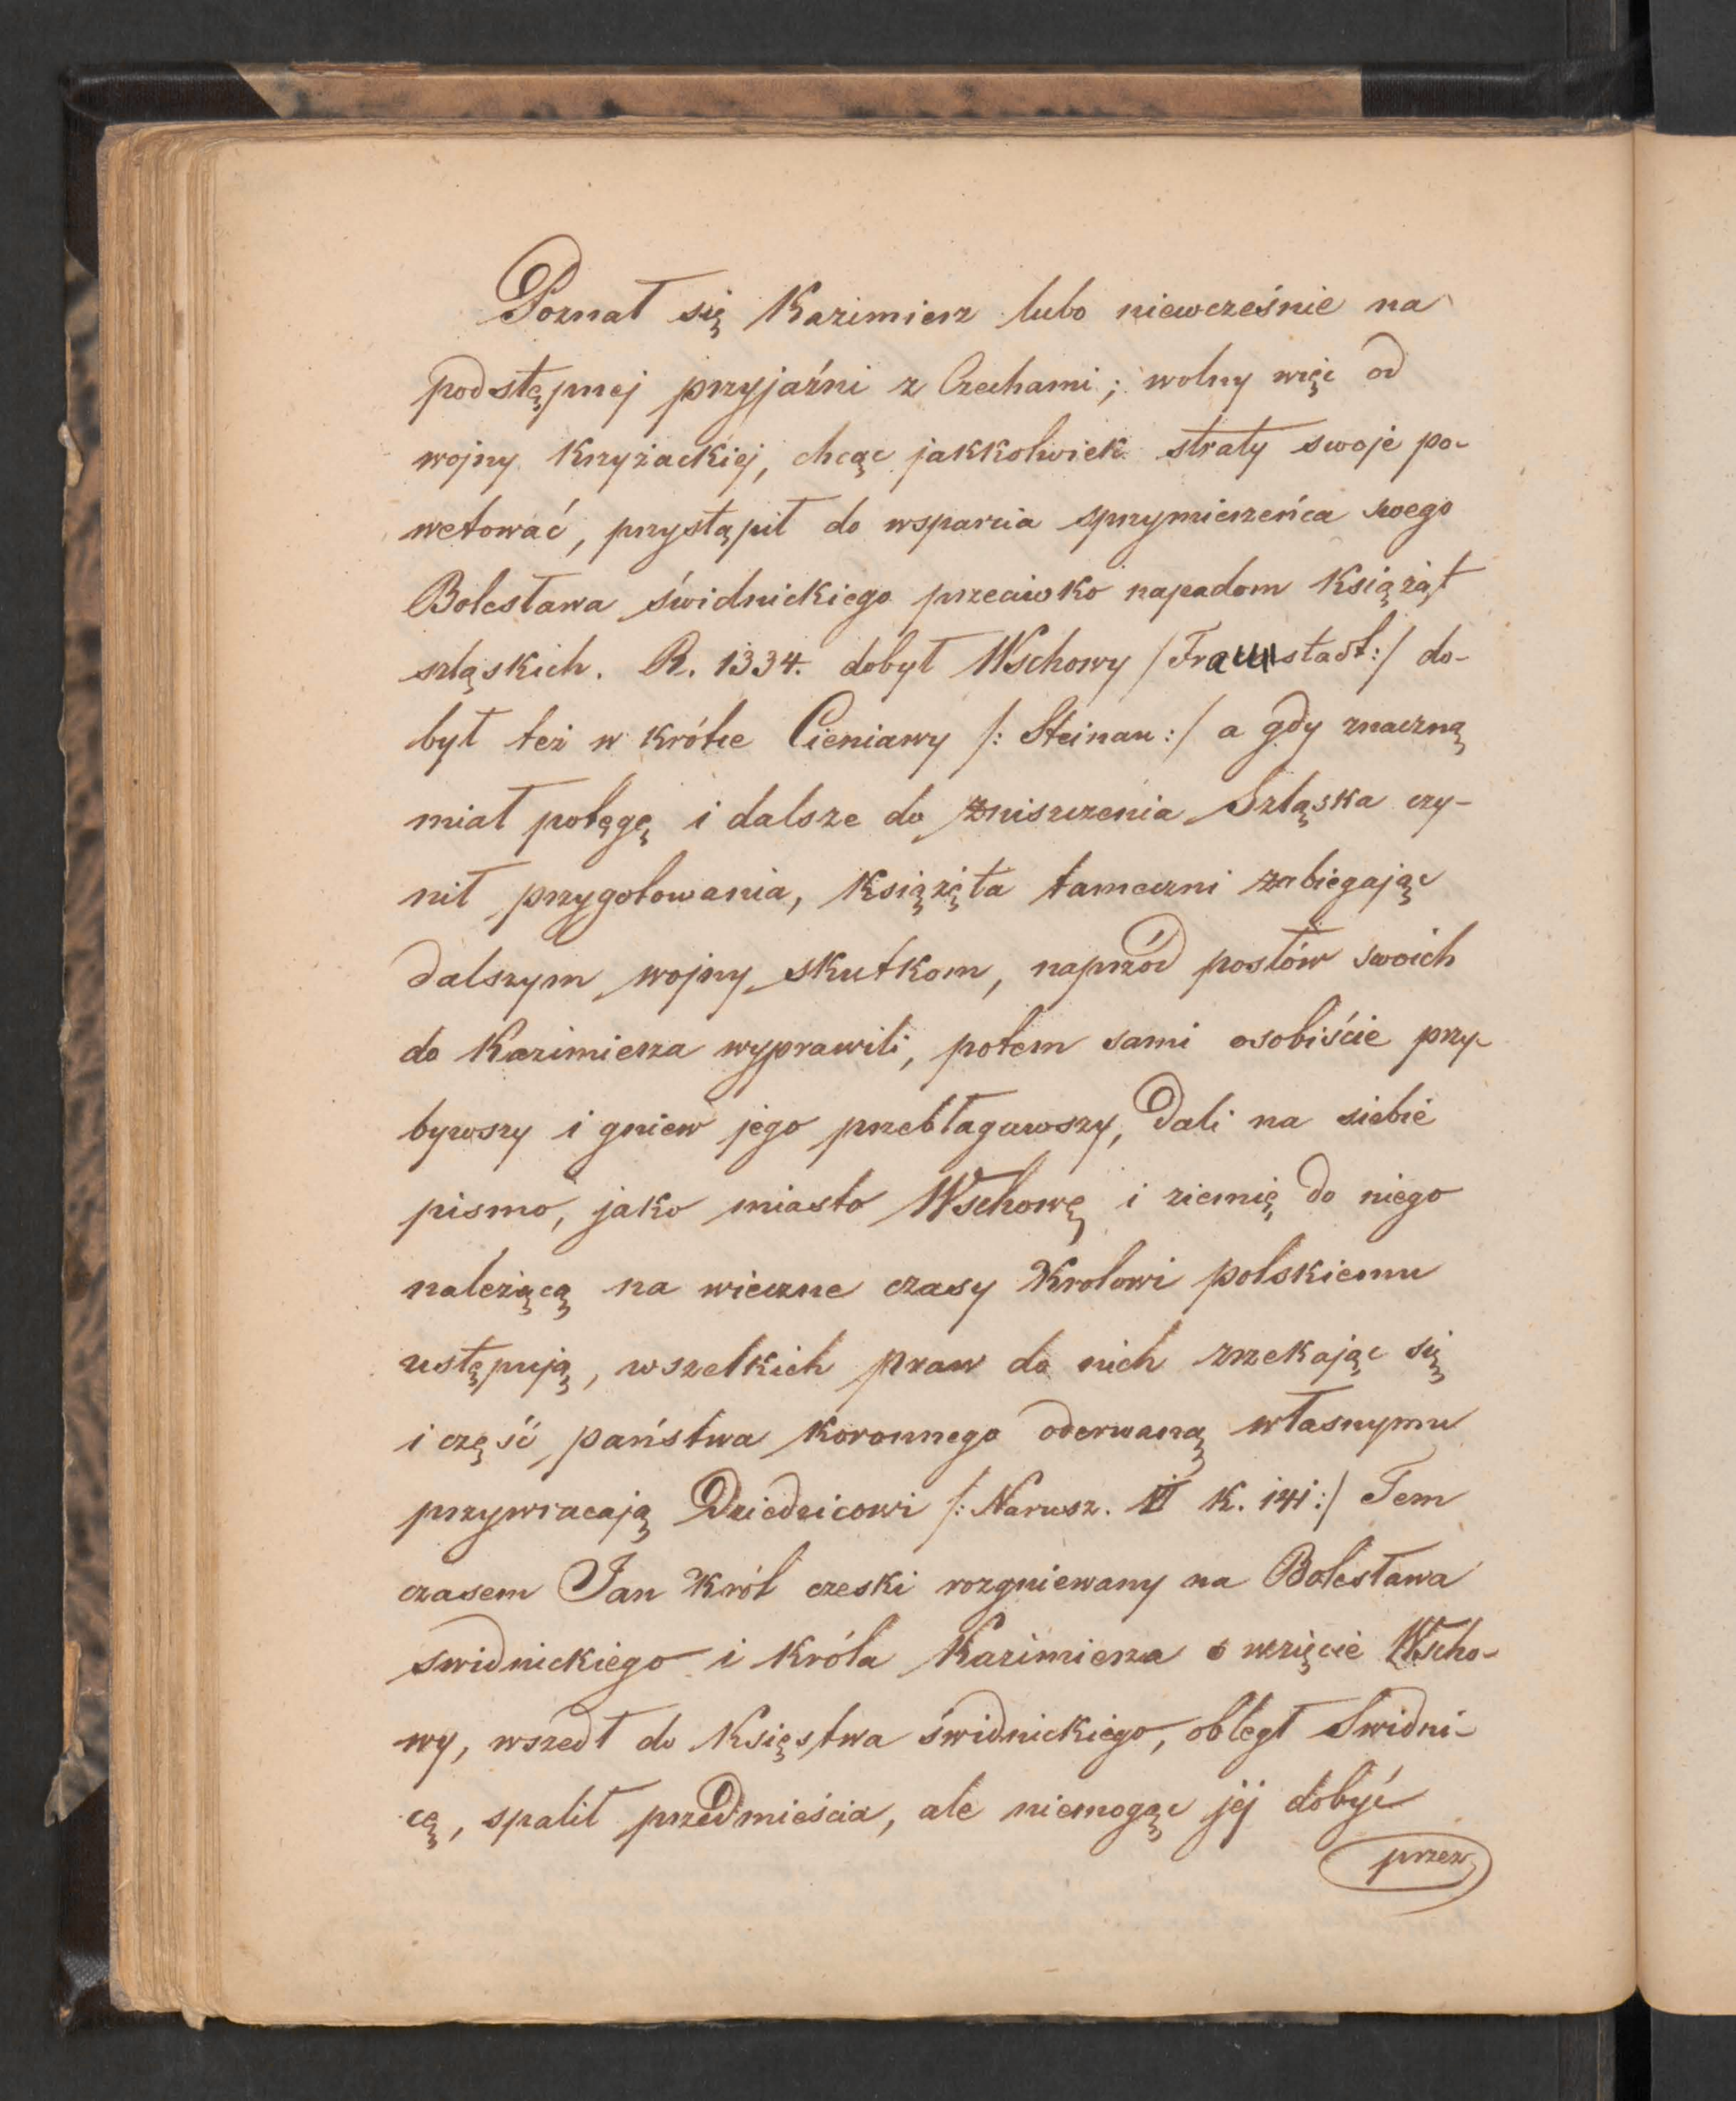 Poznał się Kazimierz lubo niewcześnie na
podstępnej przyjaźni z Czechami; wolny więc od
wojny Krzyżackiej, chcąc jakkolwiek straty swoje po-
wetować, przystąpił do wsparcia sprzymierzeńca swego
Bolesława świdnickiego przeciwko napadom Książąt
szląskich. R. 1334. dobył Wschowy /Fraunstadt:/ do-
był też w krótce Cieniawy /: Steinau :/ a gdy znaczną
miał potęgę i dalsze do zniszczenia Szląska czy-
nił przygotowania, Książęta tameczni zabiegając
dalszym wojny skutkom, naprzód posłów swoich
do Kazimierza wyprawili, potem sami osobiście przy-
bywszy i gniew jego przebłagawszy, dali na siebie
pismo, jako miasto Wschowę i ziemię do niego
należącą na wieczne czasy Krolowi polskiemu
ustępują, wszelkich praw do nich zrzekając się
i część państwa koronnego oderwaną własnymu
przywracają Dziedzicowi /: Narusz. VI K. 141:/ Tem
czasem Jan Król czeski rozgniewany na Bolesława
swidnickiego i króla Kazimierza o wzięcie Wscho-
wy, wszedł do Księstwa świdnickiego, obległ Swidni-
cę, spalił przedmieścia, ale niemogąc jej dobyć
przez